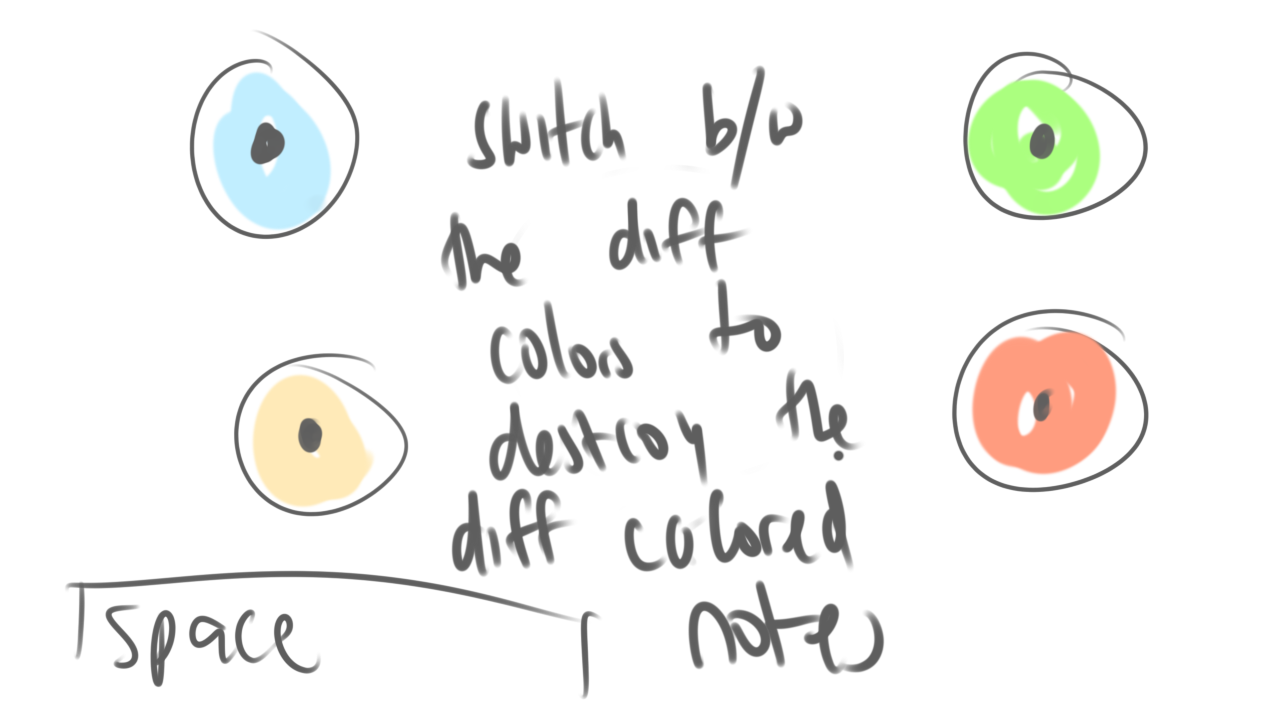 switch b/w
the diff
colors to
destroy the
diff colored
notes
space